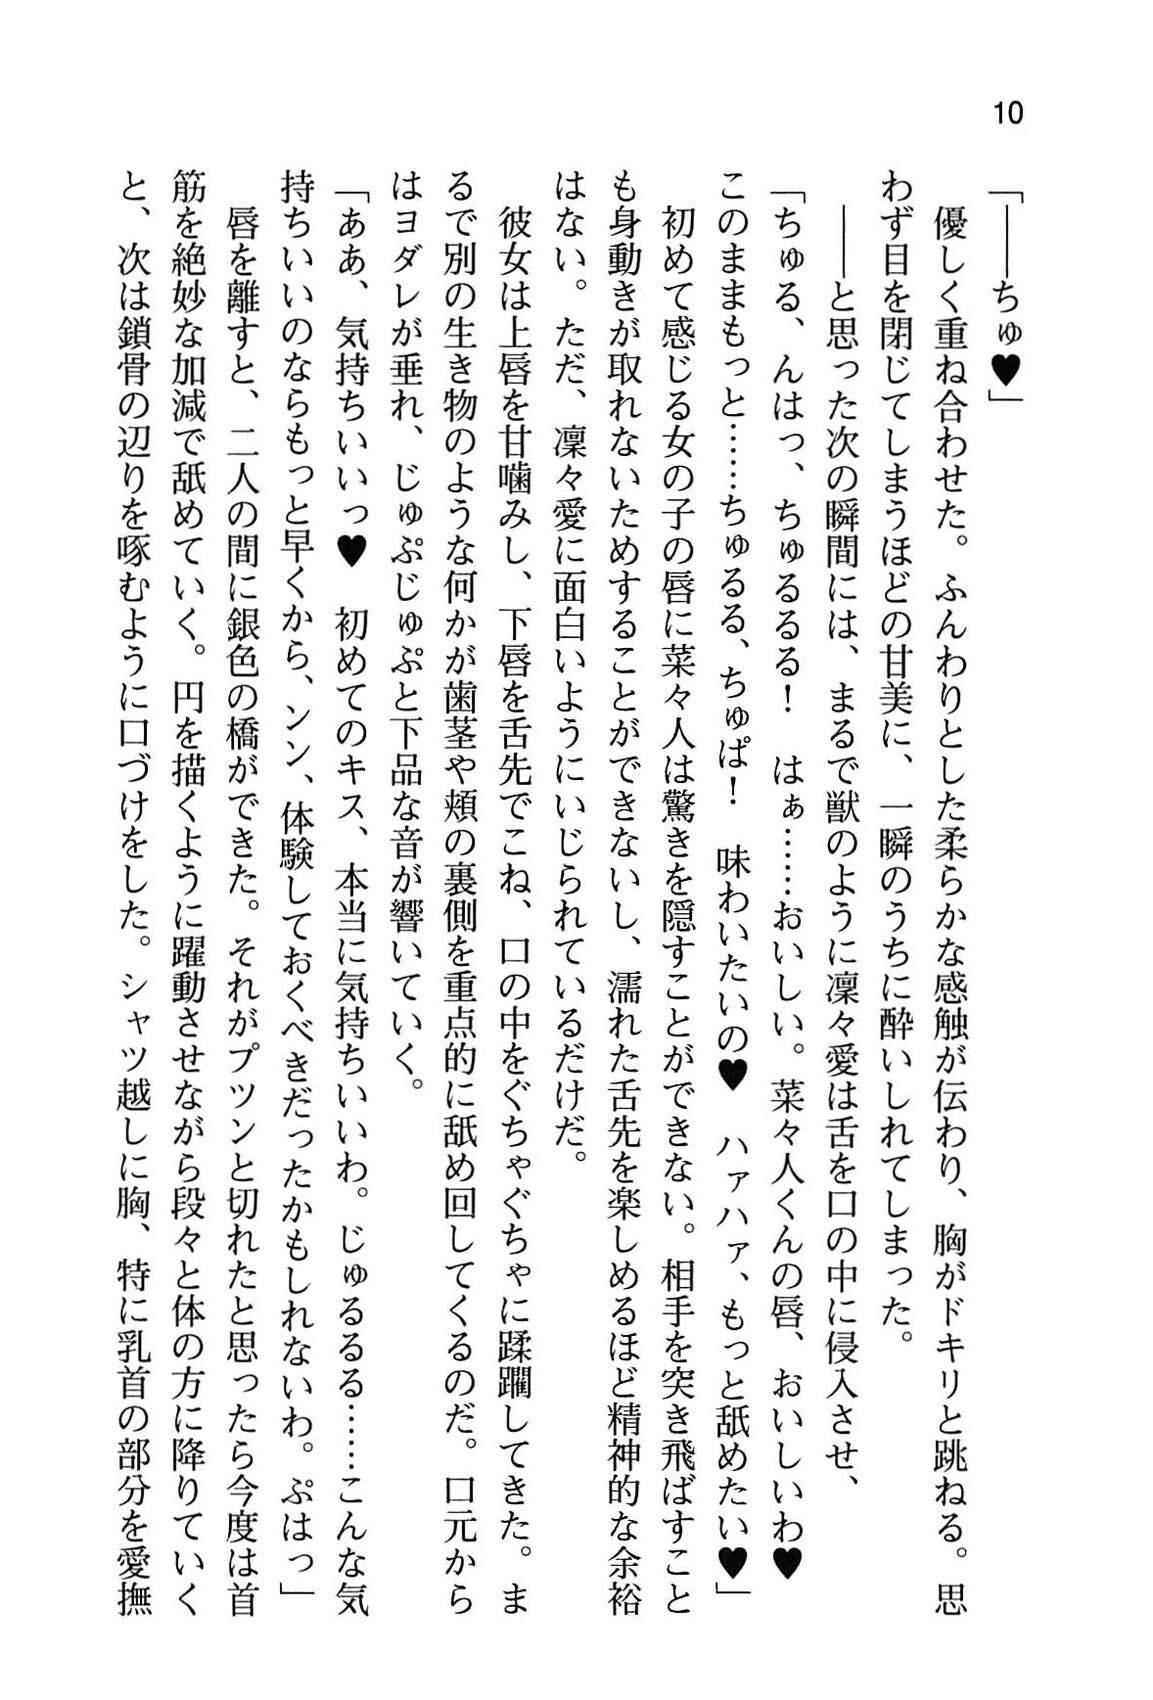 10
「――ちゅ♥」
　優しく重ね合わせた。ふんわりとした柔らかな感触が伝わり、胸がドキリと跳ねる。思
わず目を閉じてしまうほどの甘美に、一瞬のうちに酔いしれてしまった。
　――と思った次の瞬間には、まるで獣のように凜々愛は舌を口の中に侵入させ、
「ちゅる、んはっ、ちゅるるる！　はぁ……おいしい。菜々人くんの唇、おいしいわ♥
このままもっと……ちゅるる、ちゅぱ！　味わいたいの♥　ハァハァ、もっと舐めたい♥」
　初めて感じる女の子の唇に菜々人は驚きを隠すことができない。相手を突き飛ばすこと
も身動きが取れないためすることができないし、濡れた舌先を楽しめるほど精神的な余裕
はない。ただ、凜々愛に面白いようにいじられているだけだ。
　彼女は上唇を甘噛みし、下唇を舌先でこね、口の中をぐちゃぐちゃに蹂躙してきた。ま
るで別の生き物のような何かが歯茎や頬の裏側を重点的に舐め回してくるのだ。口元から
はヨダレが垂れ、じゅぷじゅぷと下品な音が響いていく。
「ああ、気持ちいいっ♥　初めてのキス、本当に気持ちいいわ。じゅるるる……こんな気
持ちいいのならもっと早くから、ンン、体験しておくべきだったかもしれないわ。ぷはっ」
　唇を離すと、二人の間に銀色の橋ができた。それがプツンと切れたと思ったら今度は首
筋を絶妙な加減で舐めていく。円を描くように躍動させながら段々と体の方に降りていく
と、次は鎖骨の辺りを啄むように口づけをした。シャツ越しに胸、特に乳首の部分を愛撫